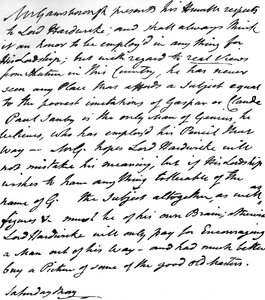 Mr Gainsborough presents his Humble respects
to Lord Hardwicke; and shall always think
it an honor to be employ'd in anything for
His Lordship; but with regard to real Views
from Nature in this Country, he has never
seen any Place that affords a Subject equal
to the poorest imitations of Gaspar or Claude.
Paul Sanby is the only Man of Genius, he
believes, who has employ'd his Pencil that
way — Mr G. hopes Lord Hardwicke will
not mistake his meaning, but if His Lordship
wishes to have any thing tollerable of the
name of G. the Subject altogether, as well as
figures &c must be of his own Brain; otherwise
Lord Hardwicke will only pay for Encouraging
a Man out of his way — and had much better
buy a Picture of some of the good Old Masters.
Saturday Morng